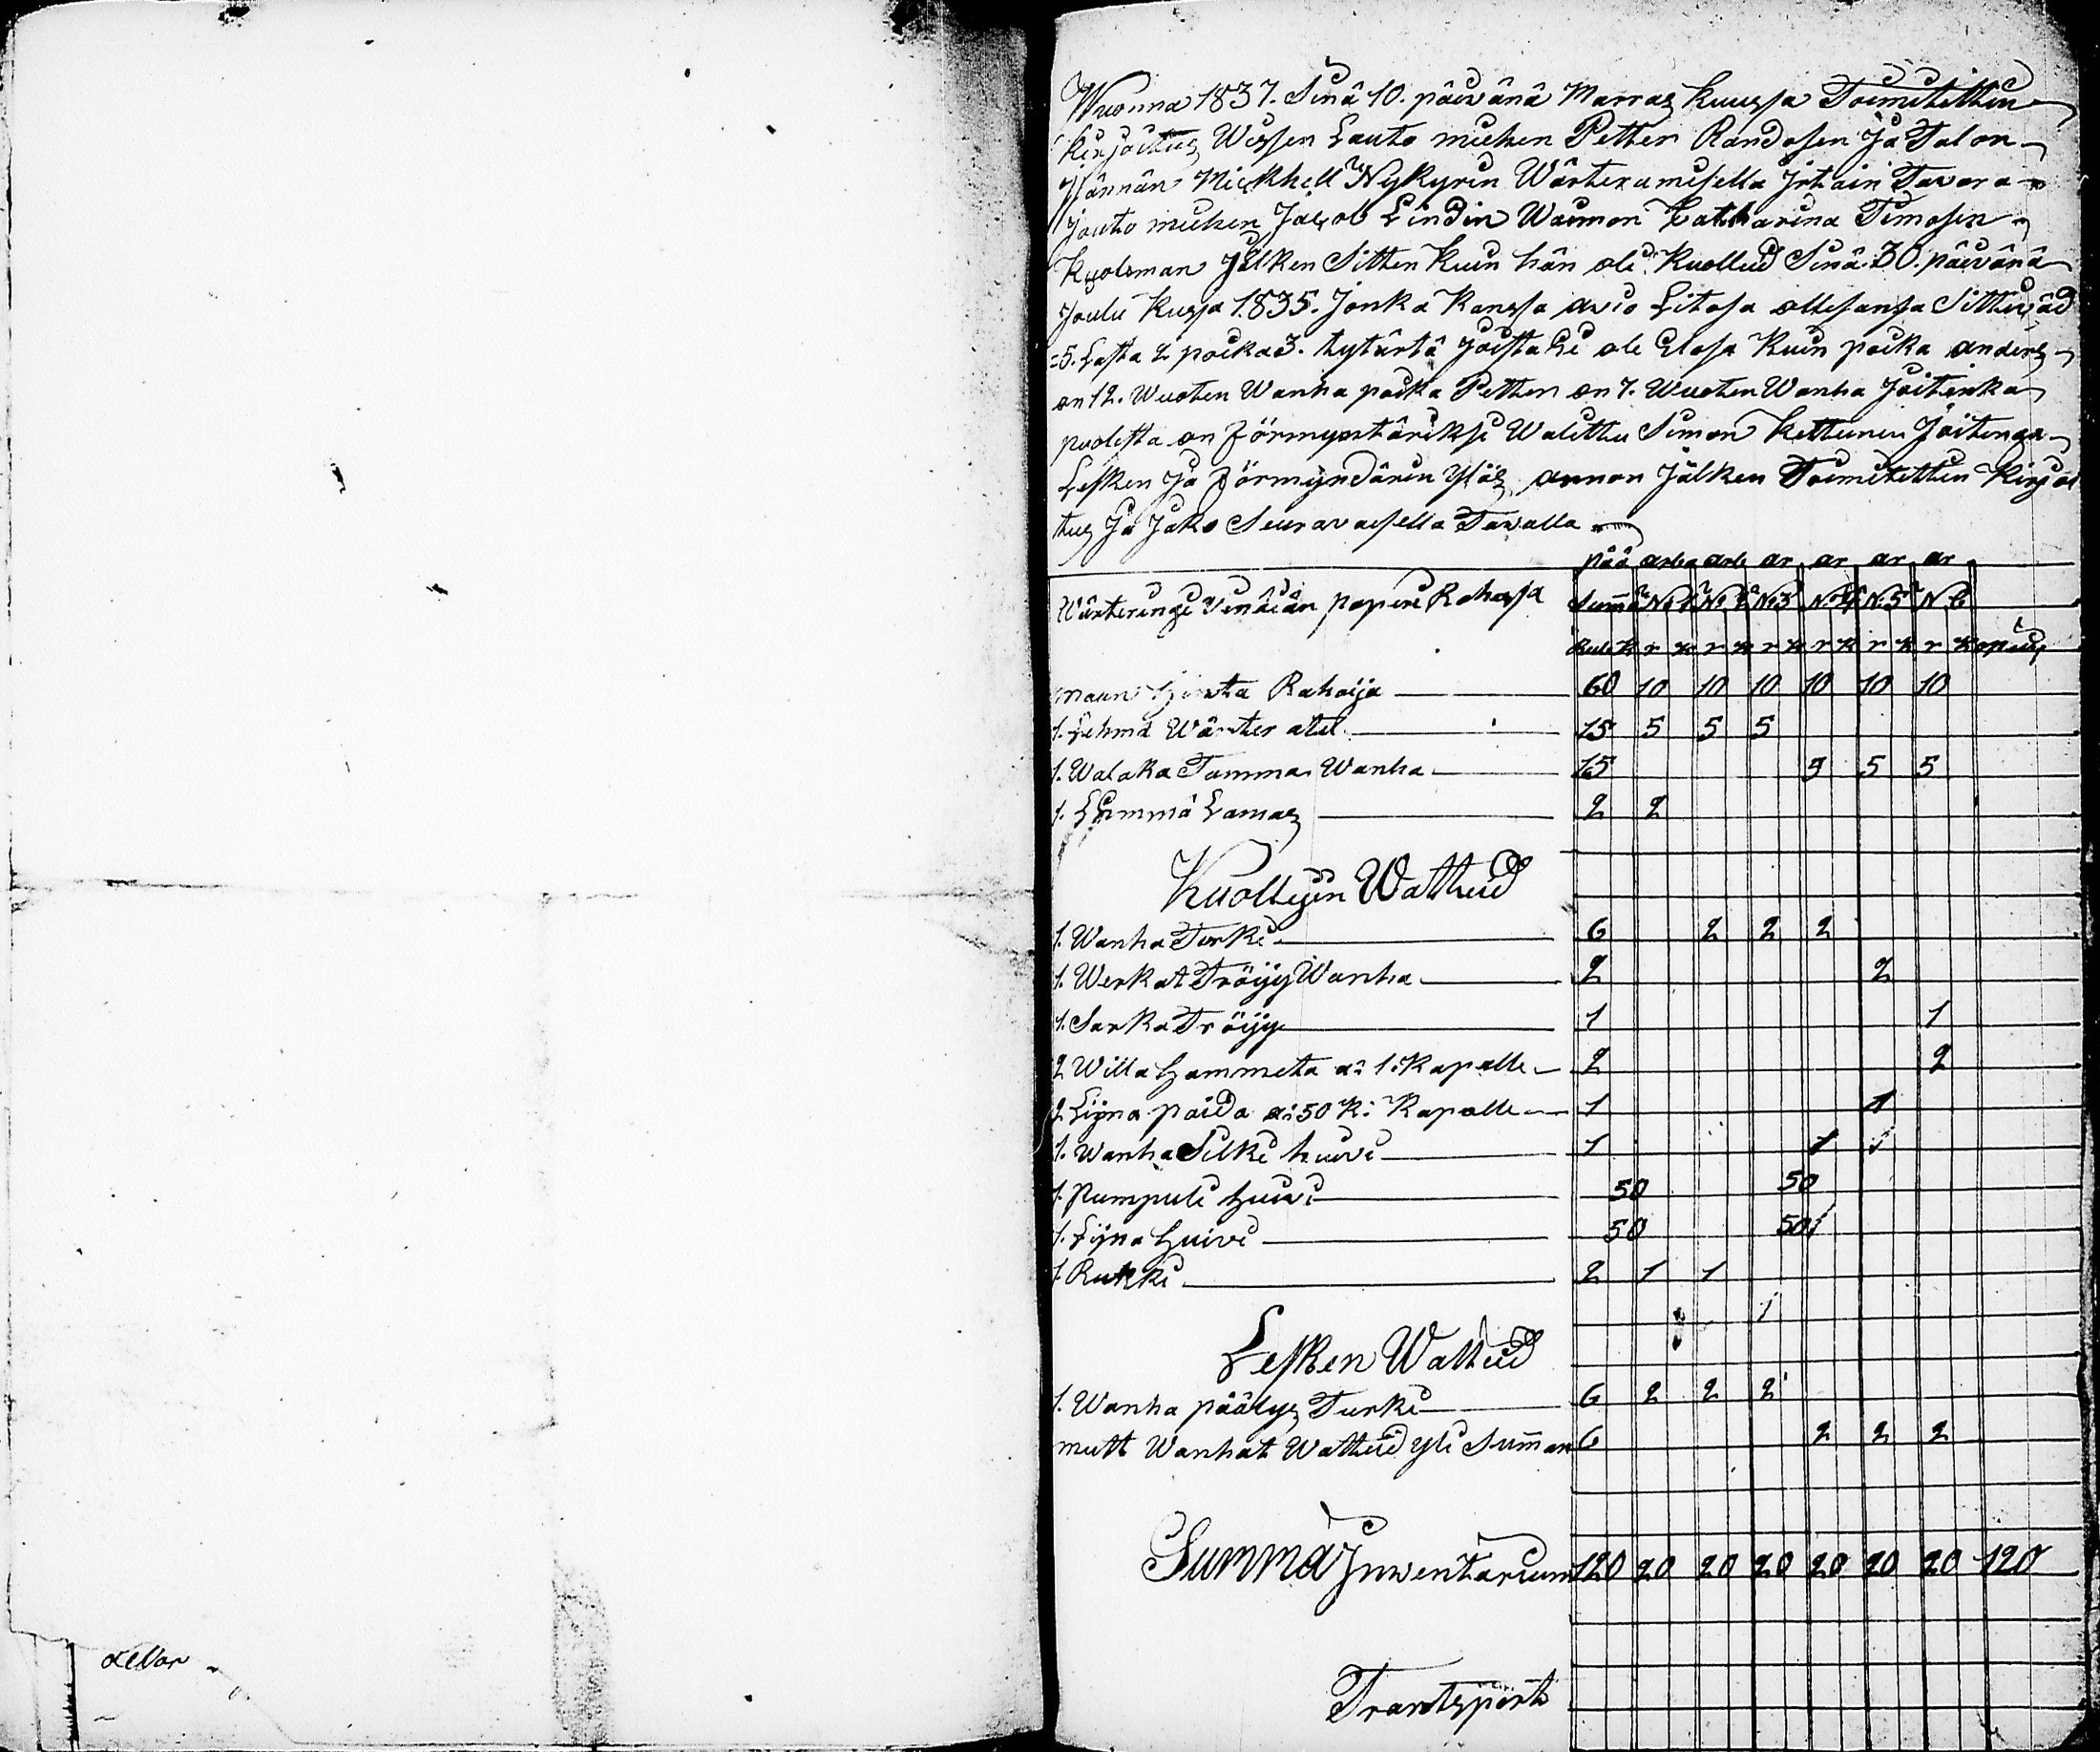 Wuonna 1837. Sinä 10. päiwänä Marras kuussa Toimitettin
kirjoitus Wissen Lauto miehen Petter Randosen Ja Talon
Jsännän Mickhell Nykyrin Wärteramisella Jrtain Tawara
Jouto miehen Jacob Lindin Waimon Catharina Timosen
kuoleman Jälken Sitten kuin hän oli kuollud Sinä 30. päivänä
Joulu kussa 1835. Jonka kanssa awio Litosa ollesansa Sittiwäd
5. Lasta 2 poika 3. tytärtä Joista Ei ole Elosa kuin poika anders
on 12. Wuoten Wanha poika Petter on 7. Wuoten Wanha Joitenka
puolesta on förmyntäriksi Walittu Simon Kettunen Joitenga
Lesken Ja förmyndärin Ylös annon Jälken Toimitettin kirjoi
tus Ja Jako Seuravaisella Tawalla
pää arba arb ar ar ar ar
Wärteringi Venäiän papiri Rahassa Summa No 1 No 2 No 3 No 4 N. 5 N 6
Rubl K r k r k r k r k r k r kopeik
maan hinta Rahoija 60 10 10 10 10 10 10
1. Lehmä Wärter atel 15 5 5 5
1. Walaka Tamma Wanha 15 5 5 5
1. Lamas 2 2
Kuolleijen Watteid
1. Wanha Turki 6 2 2 2
1. Werkat Tröijy Wanha 2 2
1. Sarka Tröijy 1 1
2 Willa hammeta a: 1: kapalle 2 2
2 Lijna paida a: 50 K: kapalle 1 1
1. Wanha Silki huivi 1 1
1. Pumpuli huivi 50 50
1. Lijna huivi 50 50
1. Rukki 2 1 1
Lesken Watteid
1. Wanha päälys Turki 6 2 2 2
mutt Wanhat Watteid yli Summan 6 2 2 2
Summa Jnwentarium 120 20 20 20 20 20 20 120
Trantsport